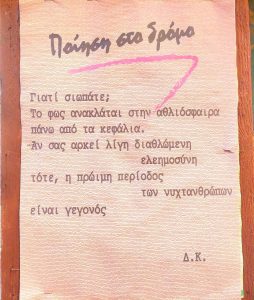 Ποίηση στο δρόμο
Γιατί σιωπάτε;
Το φως ανακλάται στην αθλιόσφαιρα
πάνω από τα κεφάλια.
Αν σας αρκεί λίγη διαθλώμενη
ελεημοσύνη
τότε, η πρώιμη περίοδος
των νυχτανθρώπων
είναι γεγονός
Δ.Κ.